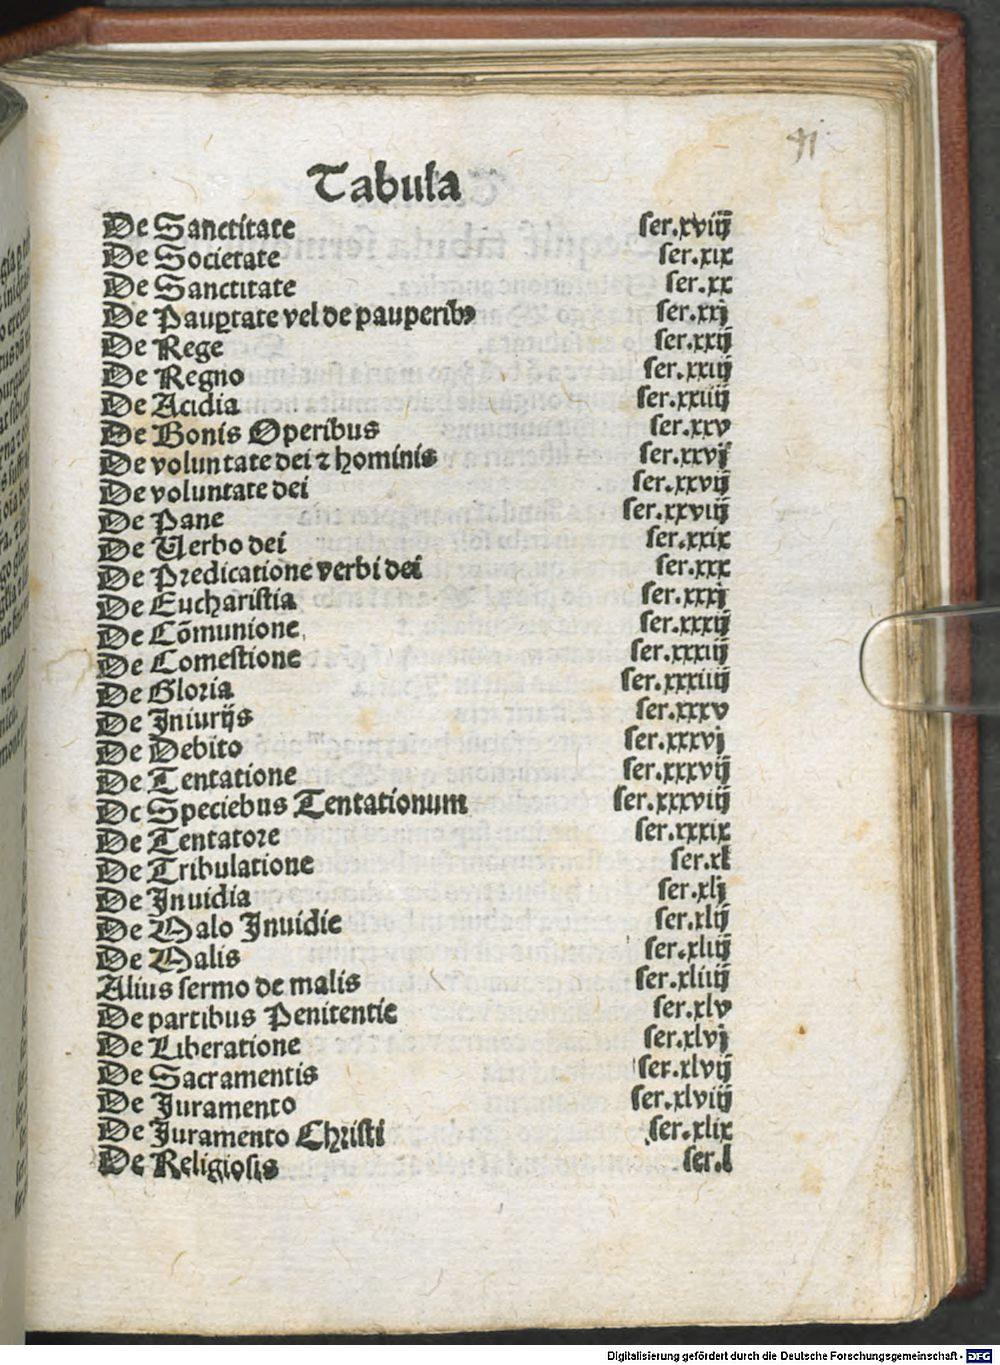 Tabula
De Sanctitate ser.xviij
De Societate ser.xix
De Sanctitate ser.xx
De Pauꝑtate vel de pauperibꝰ ser.xxj
De Rege ser.xxij
De Regno ser.xxiij
De Acidia ser.xxiiij
De Bonis Operibus ser.xxv
De voluntate dei ⁊ hominis ser.xxvj
De voluntate dei ser.xxvij
De Pane ser.xxviij
De Verbo dei ser.xxix
De Predicatione verbi dei ser.xxx
De Eucharistia ser.xxxj
De Cōmunione ser.xxxij
De Comestione ser.xxxiij
De Gloria ser.xxxiiij
De Iniurijs ser.xxxv
De Debito ser.xxxvj
De Tentatione ser.xxxvij
De Speciebus Tentationum ser.xxxviij
De Tentatore ser.xxxix
De Tribulatione ser.xl
De Inuidia ser.xlj
De Malo Inuidie ser.xlij
De Malis ser.xliij
Alius sermo de malis ser.xliiij
De partibus Penitentie ser.xlv
De Liberatione ser.xlvj
De Sacramentis ser.xlvij
De Iuramento ser.xlviij
De Iuramento Christi ser.xlix
De Religiosis ser.l
Digitalisierung gefördert durch die Deutsche Forschungsgemeinschaft - DFG